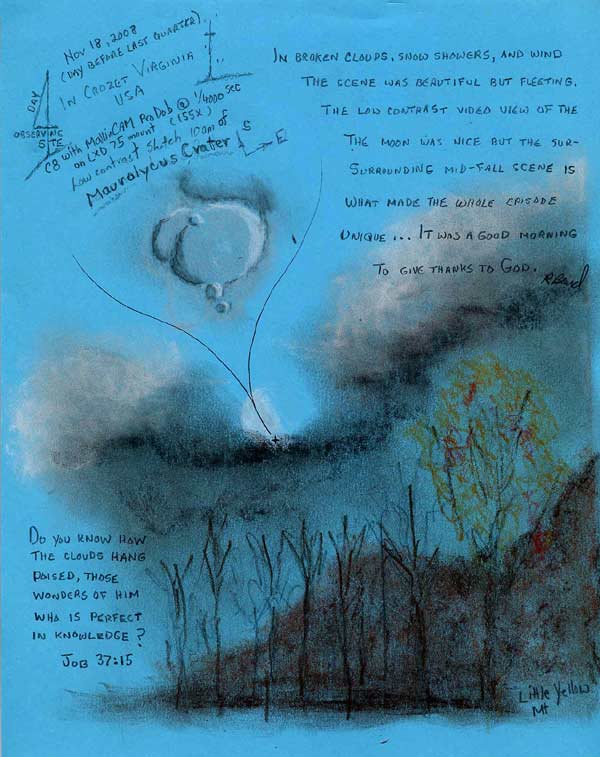 Nov 18, 2008
(DAY BEFORE LAST QUARTER)
IN CROZET VIRGINIA
USA
DAY
OBSERVING
SITE
C8 with MallinCAM ProDob @ 1/4000 sec
on LXD 75 mount (155x)
Low contrast sketch 10am of
Maurolycus Crater
S
E
IN BROKEN CLOUDS, SNOW SHOWERS, AND WIND
THE SCENE WAS BEAUTIFUL BUT FLEETING.
THE LOW CONTRAST VIDEO VIEW OF THE
THE MOON WAS NICE BUT THE SUR-
SURROUNDING MID-FALL SCENE IS
WHAT MADE THE WHOLE EPISODE
UNIQUE... IT WAS A GOOD MORNING
TO GIVE THANKS TO GOD.
DO YOU KNOW HOW
THE CLOUDS HANG
POISED, THOSE
WONDERS OF HIM
WHO IS PERFECT
IN KNOWLEDGE?
JOB 37:15
Little Yellow
Mt